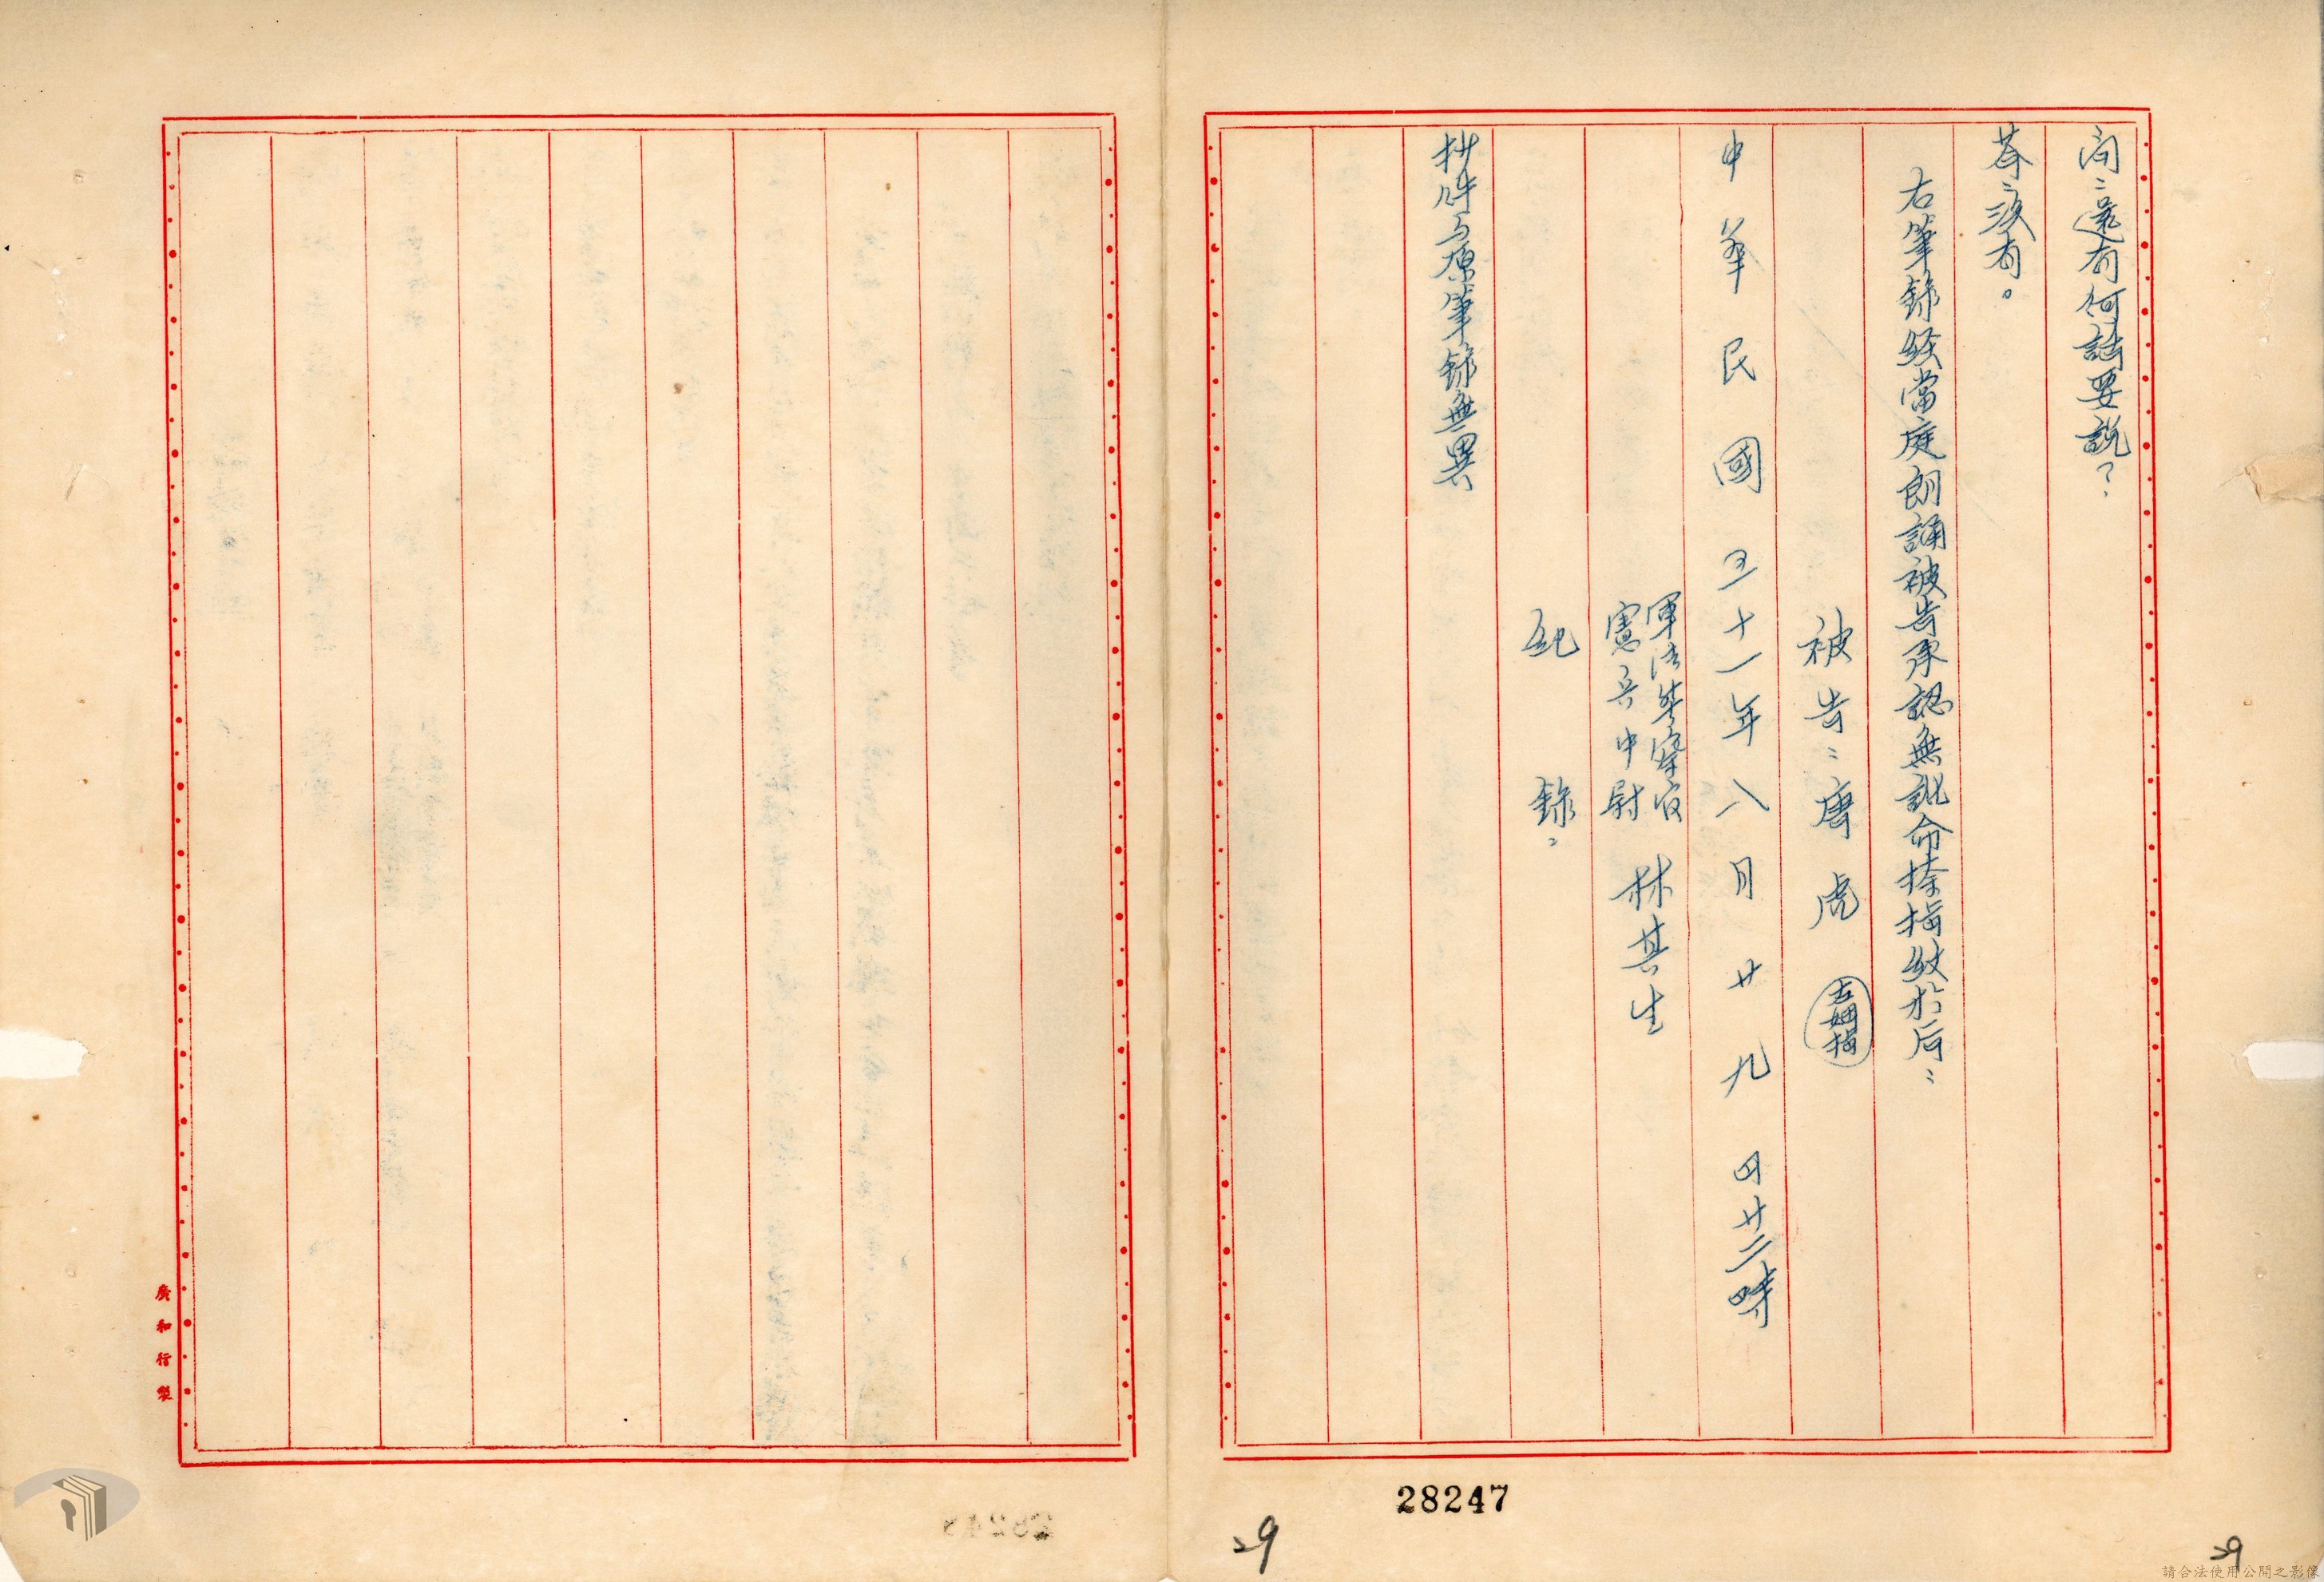 問：還有何話要說？
答：沒有。
右筆錄經當庭朗誦被告承認無訛命捺指紋於后：
被告：唐虎 右姆指
中華民國五十一年八月廿九日廿二時
軍法警察官
憲兵中尉 林其生
紀錄：
抄件与原筆錄無異
廣和行製
28247
29
29
請合法使用公開之影像